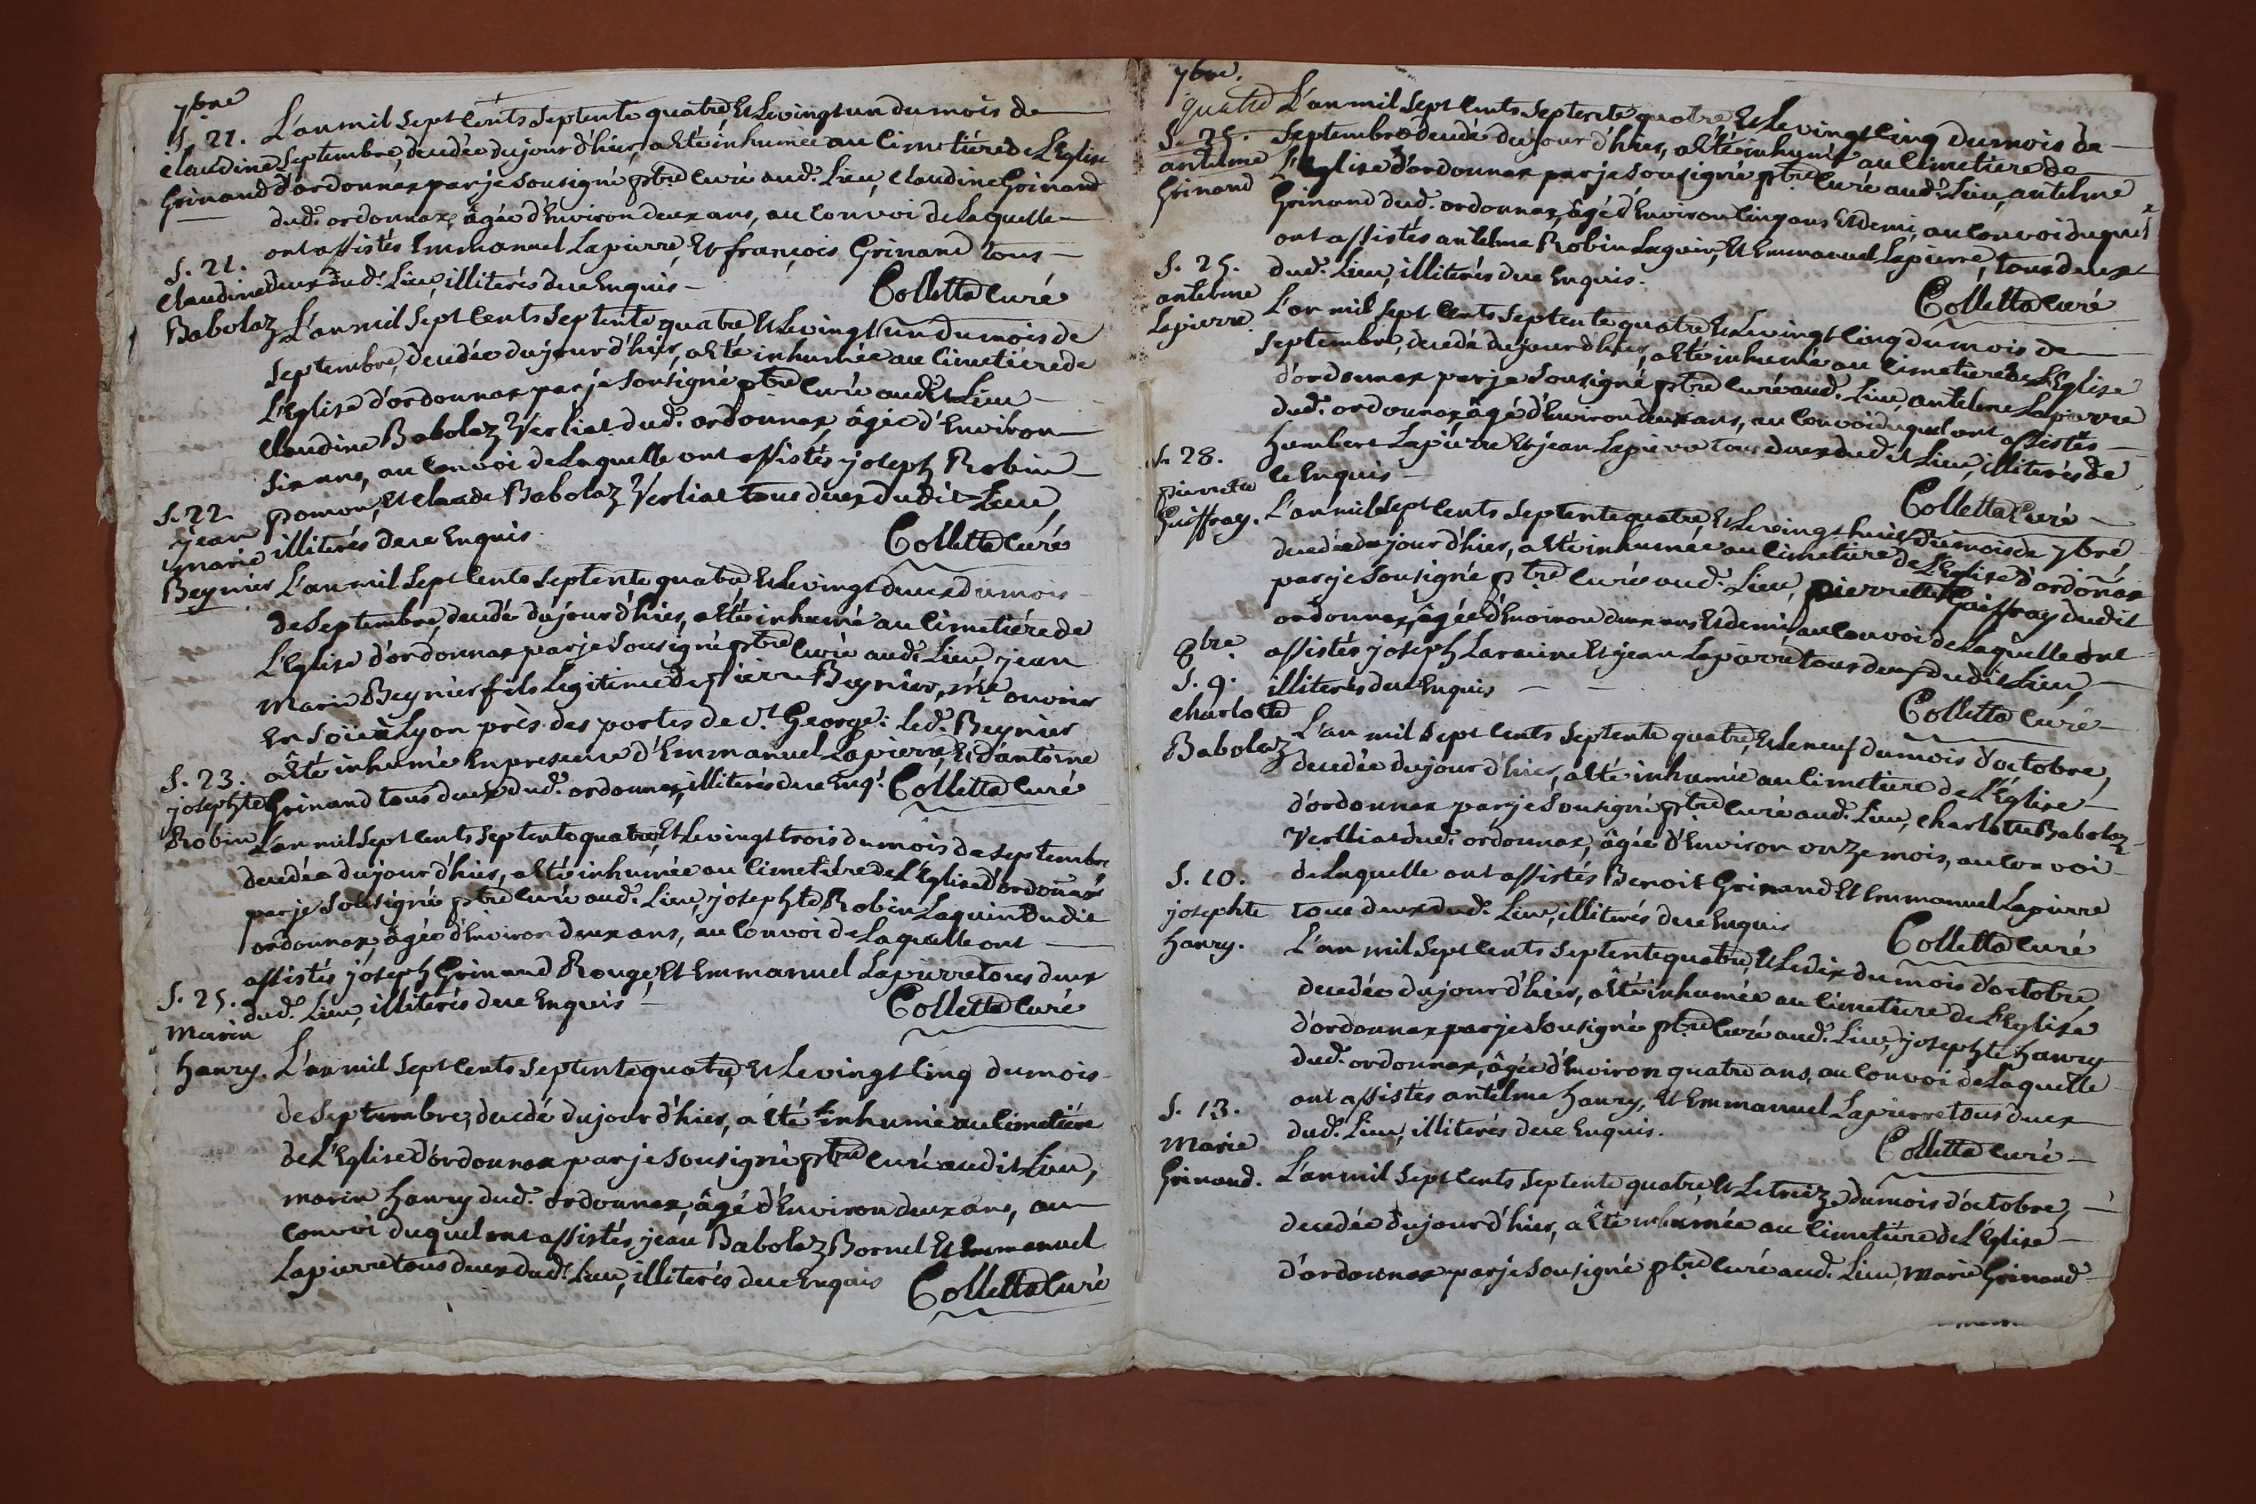 7bre
S. 21.
claudine
Grinand
L'an mil sept cents septente quatre, et le vingt un du mois de
septembre, decedée du jour d'hier, a été inhumée au cimetiére de L'Eglise
d'ordonnax par je sousigné ptre curé aud. Lieu, claudine Grinand
dud. ordonnax, âgée d'Environ deux ans, au convoi de laquelle
ont assistés Emmanuel Lapierre, et françois Grinand tous
deux dud. Lieu, illiterés de ce Enquis
Colletta curé
S. 21.
claudine
Babolaz
L'an mil sept cents septente quatre, et le vingt un du mois de
septembre, decedée du jour d'hier, a été inhumée au cimetiére de
L'Eglise d'ordonnax par je sousigné ptre curé aud. Lieu
claudine Babolaz Verliat dud. ordonnax, âgée d'Environ
six ans, au convoi de laquelle ont assistés joseph Robin
pomon, et claude Babolaz Verliat tous deux dudit Lieu,
illiterés de ce Enquis
Colletta curé
S. 22
jean
marie
Beynier
L'an mil sept cents septente quatre, et le vingt deux du mois
de septembre, decedé du jour d'hier, a été inhumé au cimetiére de
L'Eglise d'ordonnax par je sousigné ptre curé aud. Lieu, jean
Marie Beynier fils Legitime de pierre Beynier, me ouvrier
en soie à Lyon près des portes de st. George: Led. Beynier
a été inhumé En presence d'Emmanuel Lapierre, et d'antoine
Grinand tous deux dud. ordonnax, illiterés de ce Enq.
Colletta curé
S. 23.
josephte
Robin
L'an mil sept cents septente quatre, et le vingt trois du mois de septembre
decedée du jour d'hier, a été inhumée au cimetiére de L'Eglise d'ordonnax
par je sousigné ptre curé aud. Lieu, josephte Robin Laguin dudit
ordonnax, âgée d'Environ deux ans, au convoi de laquelle ont
assistés joseph Grinand Rouge, et Emmanuel Lapierre tous deux
dud. Lieu, illiterés de ce Enquis
Colletta curé
S. 25.
Marin
hanry.
L'an mil sept cents septente quatre, et le vingt cinq du mois
de septembre, decedé du jour d'hier, a été inhumé au cimetiére
de L'Eglise d'ordonnax par je sousigné ptre curé audit Lieu,
marin hanry dud. ordonnax, âgé d'Environ deux ans, au
convoi duquel ont assistés jean Babolaz Bornel et Emmanuel
Lapierre tous deux dud. Lieu, illiterés de ce Enquis
Colletta curé
7bre.
S. 25.
antelme
Grinand
quatre L'an mil sept cents septente quatre, et le vingt cinq du mois de
septembre decedé du jour d'hier, a été inhumé au cimetiére de
L'Eglise d'ordonnax par je sousigné ptre curé aud. Lieu, antelme
Grinand dud. ordonnax, âgé d'Environ cinq ans et demi, au convoi duquel
ont assistés antelme Robin Laguin, et Emmanuel Lapierre, tous deux
dud. Lieu, illiterés de ce Enquis.
Colletta curé
S. 25.
antelme
Lapierre
L'an mil sept cents septente quatre, et le vingt cinq du mois de
septembre, decedé du jour d'hier, a été inhumé au cimetiére de L'Eglise
d'ordonnax par je sousigné ptre curé aud. Lieu, antelme Lapierre
dud. ordonnax, âgé d'Environ deux ans, au convoi duquel ont assistés
humbert Lapierre et jean Lapierre tous deux dudit Lieu, illiterés de
ce Enquis
Colletta curé
S. 28.
pierrette
Guiffray.
L'an mil sept cents septente quatre, et le vingt huit du mois de 7bre
decedée du jour d'hier, a été inhumée au cimetiére de L'Eglise d'ordonnax
par je sousigné ptre curé aud. Lieu, pierrette Guiffray dudit
ordonnax, âgée d'Environ deux ans et demi, au convoi de laquelle ont
assistés joseph Laraine et jean Lapierre tous deux dudit Lieu,
illiterés de ce Enquis
Colletta curé
8bre
S. 9.
charlotte
Babolaz
L'an mil sept cents septente quatre, et le neuf du mois d'octobre,
decedée du jour d'hier, a été inhumée au cimetiére de L'Eglise
d'ordonnax par je sousigné ptre curé aud. Lieu, charlotte Babolaz
Verlliat dud. ordonnax, âgée d'Environ onze mois, au convoi
de laquelle ont assistés Benoit Grinand et Emmanuel Lapierre
tous deux dud. Lieu, illiterés de ce Enquis
Colletta curé
S. 10.
josephte
hanry.
L'an mil sept cents septente quatre, et le dix du mois d'octobre,
decedée du jour d'hier, a été inhumée au cimetiére de L'Eglise
d'ordonnax par je sousigné ptre curé aud. Lieu, josephte hanry
dud. ordonnax, âgée d'Environ quatre ans, au convoi de laquelle
ont assistés antelme hanry, et Emmanuel Lapierre tous deux
dud. Lieu, illiterés de ce Enquis.
Colletta curé
S. 13.
Marie
Grinand.
L'an mil sept cents septente quatre, et le treize du mois d'octobre,
decedée du jour d'hier, a été inhumée au cimetiére de L'Eglise
d'ordonnax par je sousigné ptre curé aud. Lieu, Marie Grinand